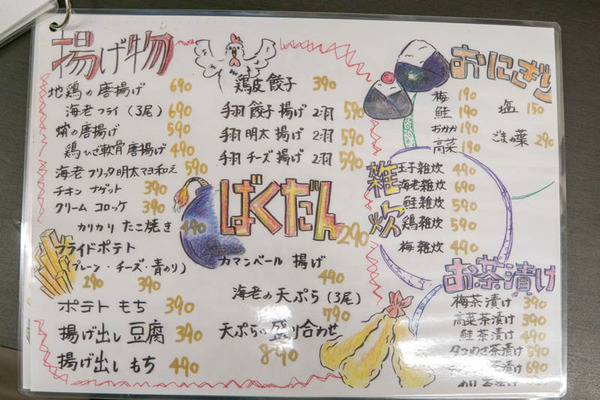 揚げ物
地鶏の唐揚げ 690
海老フライ(3尾) 690
蛸の唐揚げ 590
鶏ひざ軟骨唐揚げ 490
海老フリッタ明太マヨ和え 590
チキンナゲット 390
クリームコロッケ 390
カリカリたこ焼き 490
フライドポテト
(プレーン・チーズ・青のり)
290 390 390
ポテトもち 390
揚げ出し豆腐 390
揚げ出しもち 490
鶏皮餃子 390
手羽餃子揚げ 2羽 590
手羽明太揚げ 2羽 590
手羽チーズ揚げ 2羽 590
ばくだん 290
カマンベール揚げ
490
海老の天ぷら(3尾)
790
天ぷらの盛り合わせ
890
おにぎり
梅 190
鮭 190
おかか 190
高菜 190
塩 150
ごまの葉 290
雑炊
玉子雑炊 490
海老雑炊 690
鮭雑炊 590
鶏雑炊 590
梅雑炊 490
お茶漬け
梅茶漬け 390
高菜茶漬け 390
鮭茶漬け 490
茶漬け 590